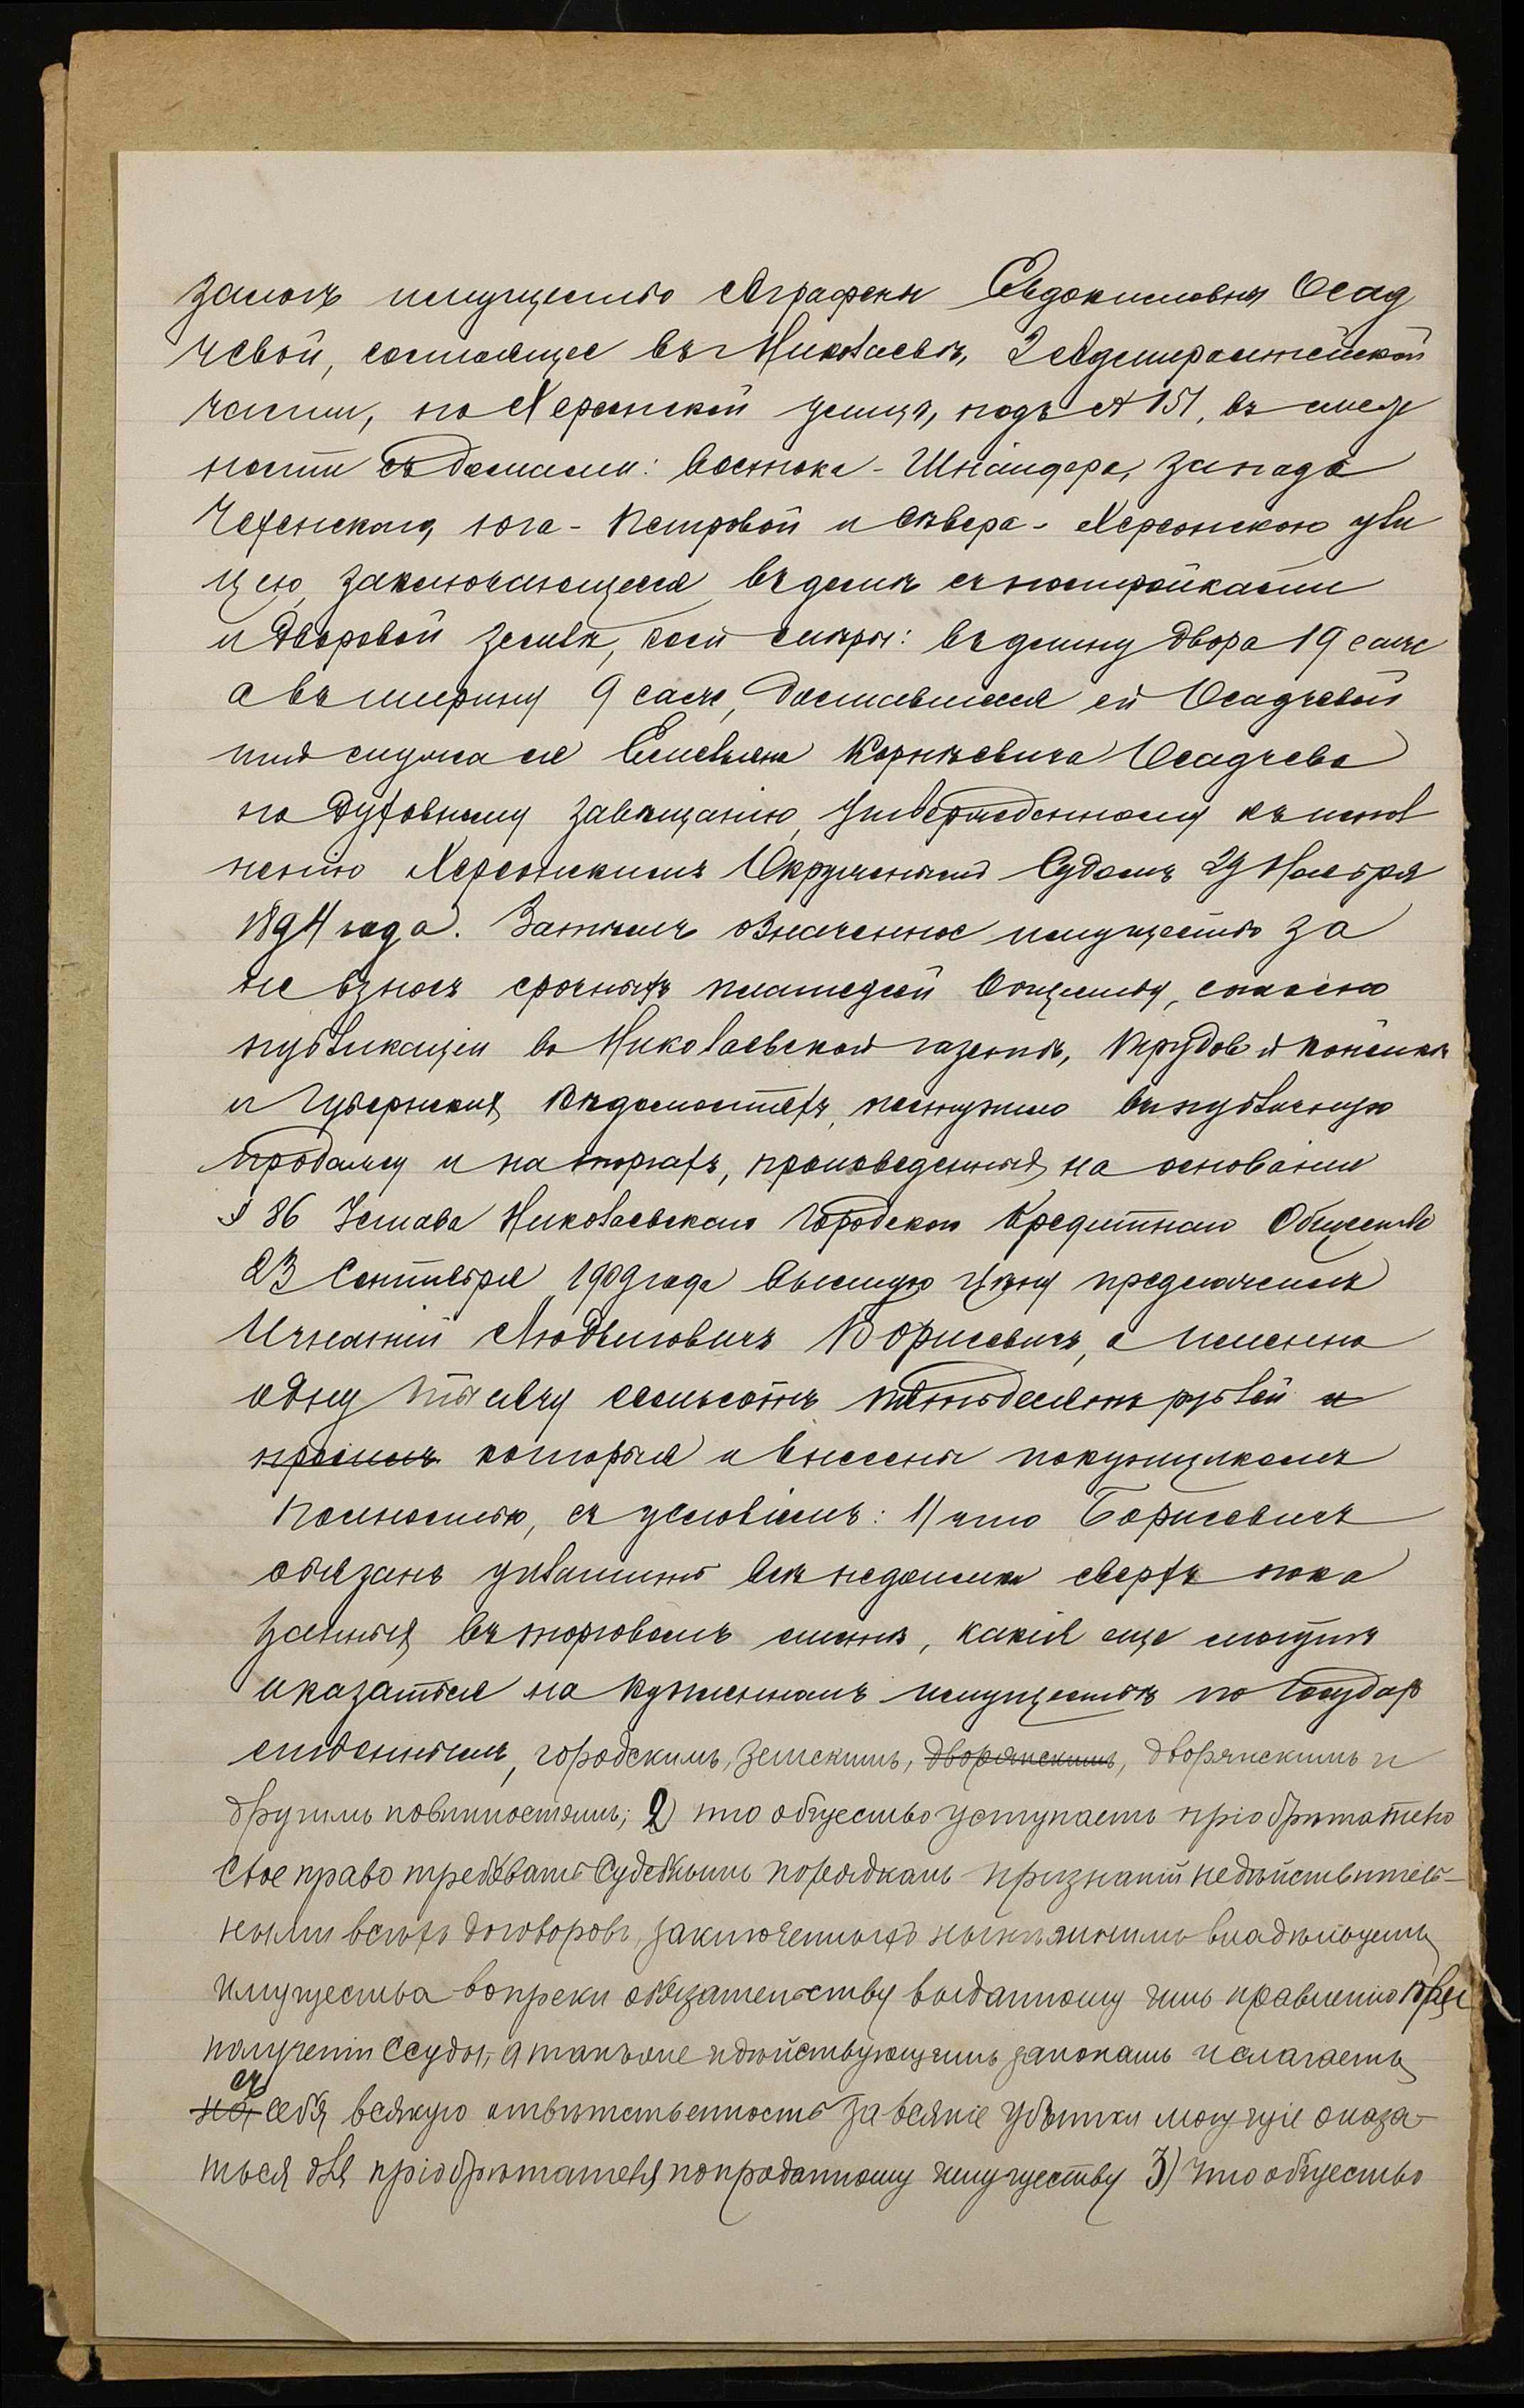 залогъ имущество Аграфены Евдокимовны Осад
чевой, состоящее въ Николаевѣ, 2 Адмиралтейской
части, по Херсонской улицѣ, подъ № 151, въ смеж
ности съ домами: востока - Шнайдера, запада
Чеховского, юга - Петровой и сѣвера - Херсонскою ули
цею, заключающееся въ домѣ съ постройками
и дворовой землѣ, коей мѣры: въ длину двора 19 саж
а въ ширину 9 саж, доставшееся ей Осадчевой
отъ мужа ея Емельяна Корнѣевича Осадчева
по духовному завѣщанію, утвержденному къ испол
ненію Херсонскимъ Окружнымъ Судомъ 29 Ноября
1894 года. Затѣмъ означенное имущество за
не взносъ срочныхъ платежей Обществу, согласно
публикаціи въ Николаевской газетѣ, Трудовой копейкѣ
и Губернскихъ Вѣдомостяхъ, поступило въ публичную
продажу и на торгахъ, произведенныхъ на основаніи
§ 86 Устава Николаевскаго Городского Кредитнаго Общества
23 Сентября 1909 года высшую цѣну предложилъ
Игнатій Людвиговичъ Борисевичъ, а именно
одну тысячу семьсотъ пятьдесятъ рублей и
просилъ которыя и внесены покупщикомъ
полностью, съ условіемъ: 1) что Борисевичъ
обязанъ уплатить всѣ недоимки сверхъ пока
занныхъ въ торговомъ листѣ, какія еще могутъ
оказаться на купленномъ имуществѣ по Государ
ственнымъ, городскимъ, земскимъ, дворянскимъ, дворянскимъ и
другимъ повинностямъ; 2) что общество уступаетъ пріобрѣтателю
свое право требовать судебнымъ порядкомъ признанія недѣйствитель-
ными всѣхъ договоровъ, заключенныхъ нынѣшнимъ владѣльцемъ
имущества вопреки обязательству выданному имъ правленію при
полученіи ссуды, а также и дѣйствующимъ законамъ и слагаетъ
съ
на себя всякую отвѣтственность за всякіе убытки могущіе оказа-
ться для пріобрѣтателя по проданному имуществу 3) что общество